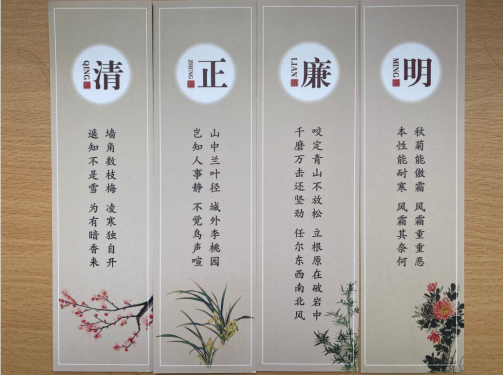 清
QING
墙角数枝梅 凌寒独自开
遥知不是雪 为有暗香来
正
ZHENG
山中兰叶径 城外李桃园
岂知人事静 不觉鸟声喧
廉
LIAN
咬定青山不放松 立根原在破岩中
千磨万击还坚劲 任尔东西南北风
明
MING
秋菊能傲霜 风霜重重恶
本性能耐寒 风霜其奈何